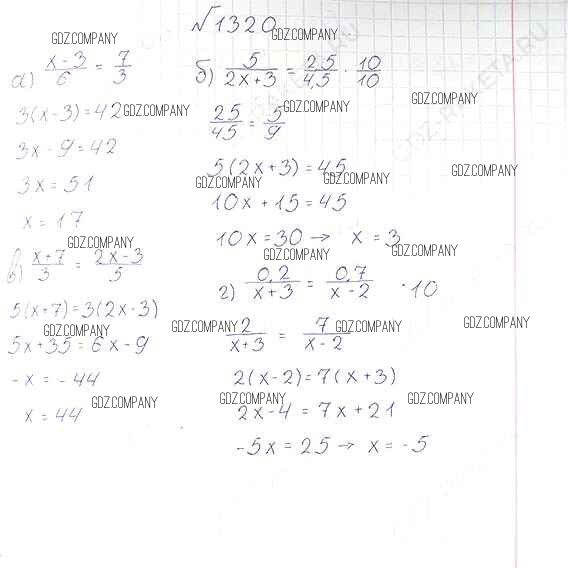 √1320
GDZ.COMPANY GDZ.COMPANY
а) x-3/6 = 7/3
б) 5/2x+3 = 2,5/4,5 · 10/10
GDZ.COMPANY
3(x-3)=42 GDZ.COMPANY
GDZ.COMPANY
25/45 = 5/9
3x-9=42
5(2x+3)=45
GDZ.COMPANY
3x=51
GDZ.COMPANY GDZ.COMPANY
10x+15=45
x=17
10x=30 → x=3
GDZ.COMPANY
GDZ.COMPANY GDZ.COMPANY
в) x+7/3 = 2x-3/5
г) 0,2/x+3 = 0,7/x-2 ·10
5(x+7)=3(2x-3)
GDZ.COMPANY GDZ.COMPANY GDZ.COMPANY GDZ.COMPANY
2/x+3 = 7/x-2
5x+35=6x-9
-x=-44
2(x-2)=7(x+3)
GDZ.COMPANY GDZ.COMPANY GDZ.COMPANY
x=44
2x-4=7x+21
-5x=25 → x=-5